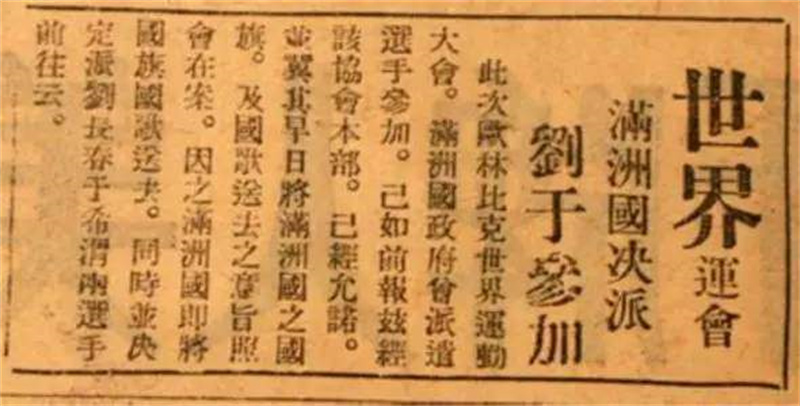 世界運會
滿洲國決派
劉于參加
此次歐林比克世界運動
大會。滿洲國政府曾派遣
選手參加。己如前報茲經
該協會本部。己經允諾。
並翼其早日將滿洲國之國
旗。及國歌送去之意旨照
會在案。因之滿洲國即將
國旗國歌送去。同時並決
定派劉長春于希渭兩選手
前往云。